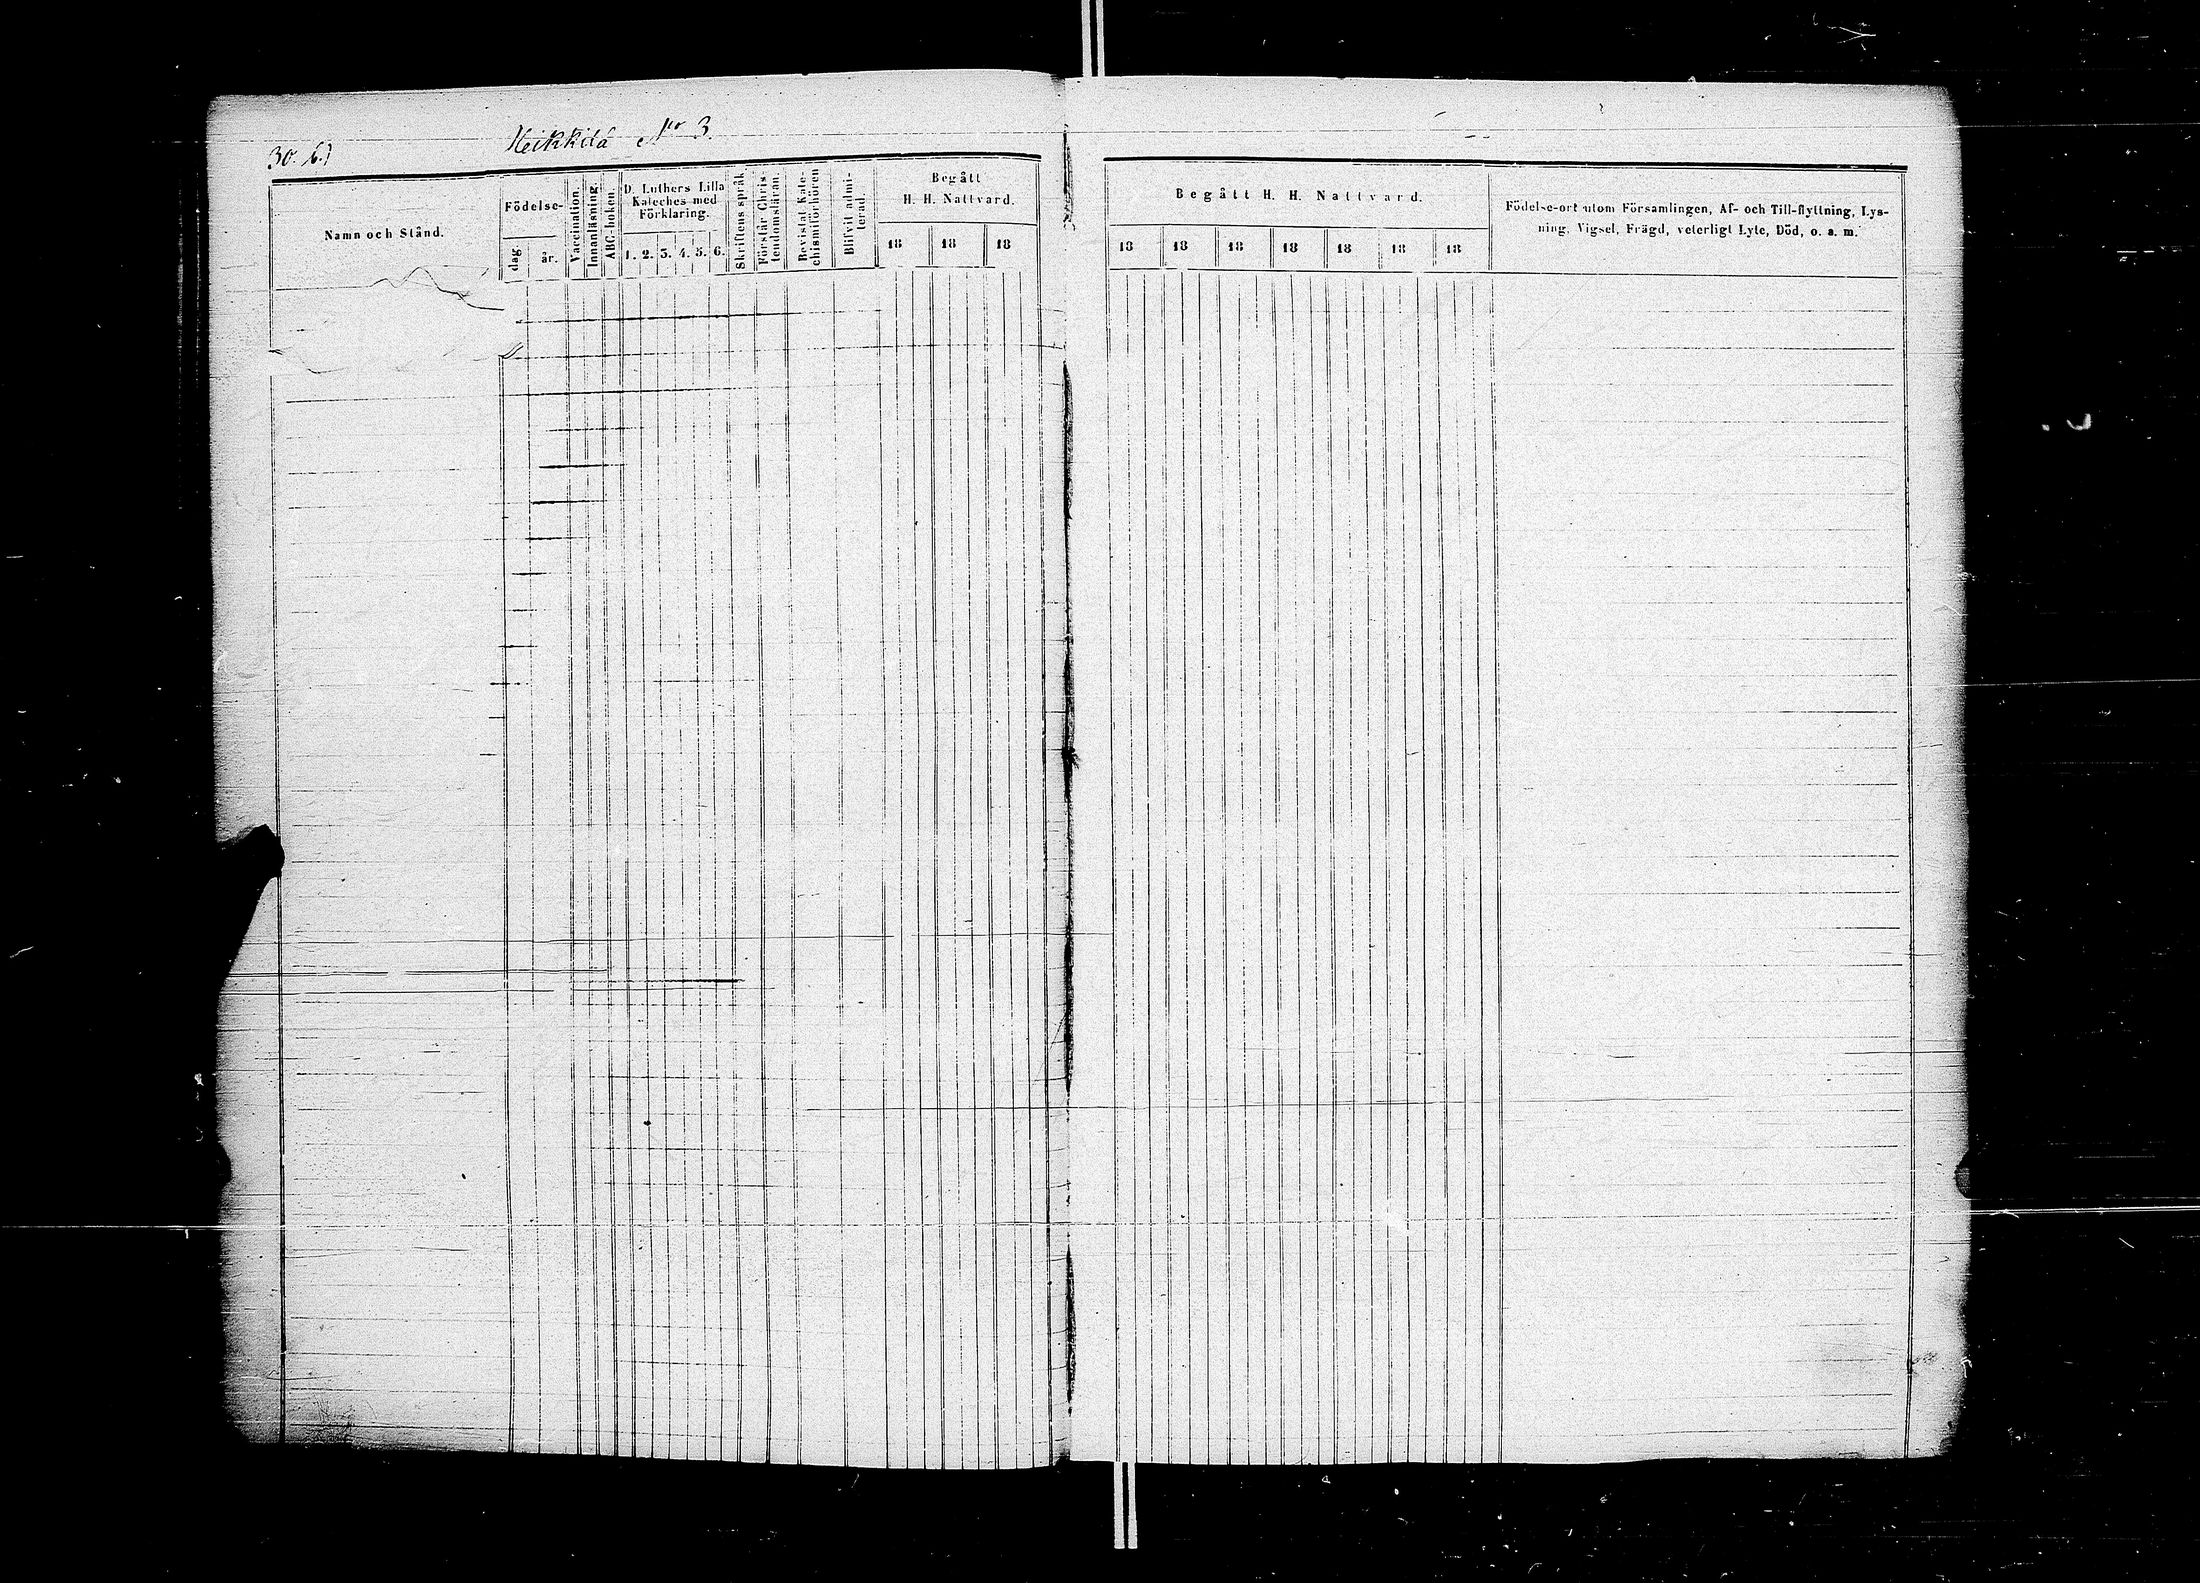 30. b.)
Heikkilä No 3.
Namn och Stånd.
Födelse-
dag
år.
Vaccination.
Innanläsning.
ABC-boken.
D. Luthers Lilla
Kateches med
Förklaring.
1. 2. 3. 4. 5. 6.
Skriftens språk.
Förstår Chris-
tendomsläran.
Bevistat Kate-
chismiförhören
Blifvit admi-
terad.
Begått
H. H. Nattvard.
18 18 18
Begått H. H. Nattvard.
18 18 18 18 18 18 18
Födelse-ort utom Församlingen, Af- och Till-flyttning, Lys-
ning, Vigsel, Frägd, veterligt Lyte, Död, o. s. m.